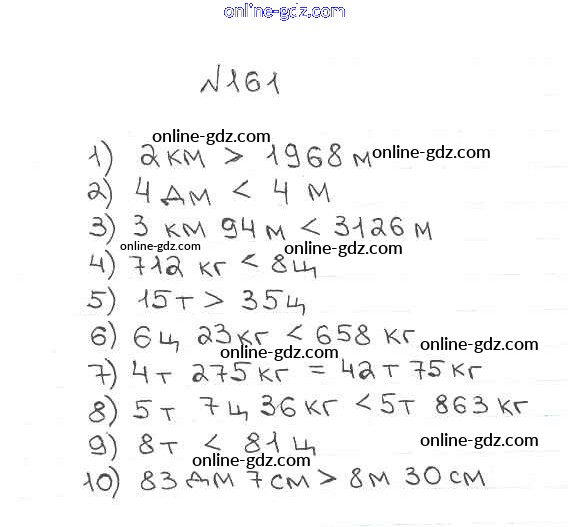 online-gdz.com
№161
online-gdz.com
1) 2 км > 1968 м online-gdz.com
2) 4 дм < 4 м
3) 3 км 94 м < 3126 м
online-gdz.com online-gdz.com
4) 712 кг < 8ц
5) 15т > 35ц
6) 6ц 23кг < 658 кг
online-gdz.com online-gdz.com
7) 4т 275кг = 42т 75кг
8) 5т 7ц 36кг < 5т 863 кг
9) 8т < 81ц online-gdz.com
online-gdz.com
10) 83 дм 7см > 8м 30см